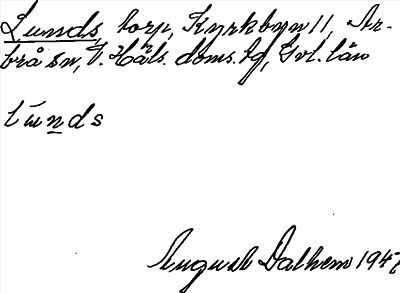 Lunds, torp, Kyrkbyn 11, Ar-
brå sn, V. Häls. doms. hg, Gvl. län
lunds
August Dalhem 1947